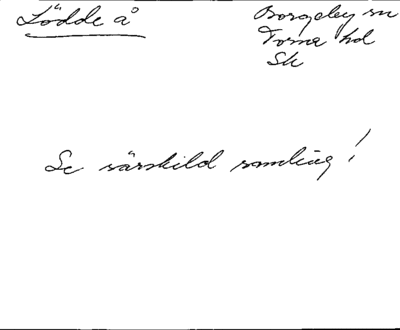 Lödde å
Borgeby sn
Torna hd
Sk
Se särskild samling!